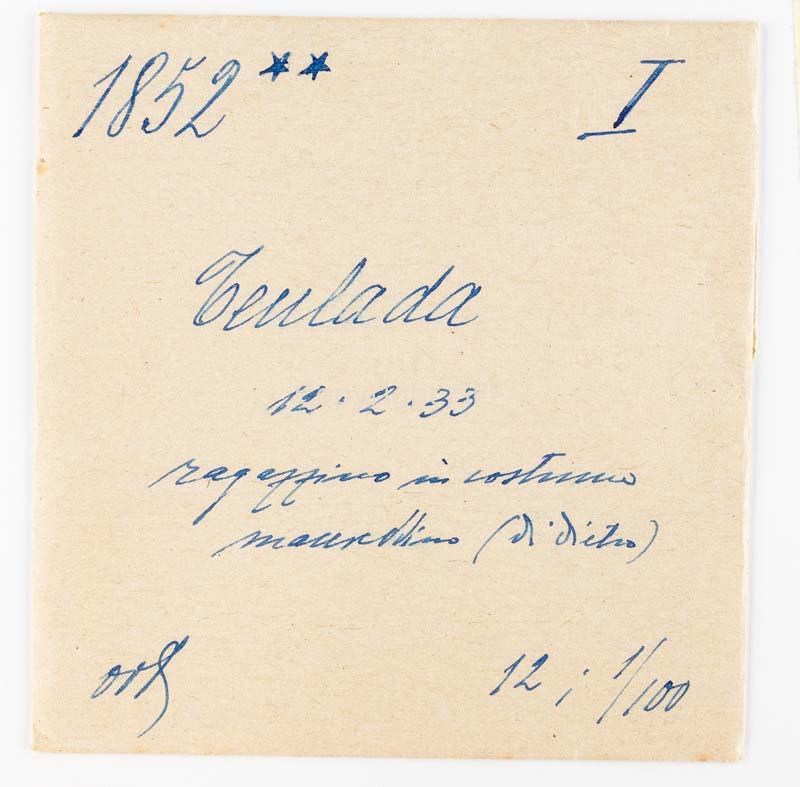 1852 ★★ I
Teulada
12.2.33
ragazzino in costume
maureddino (di dietro)
12; 1/100